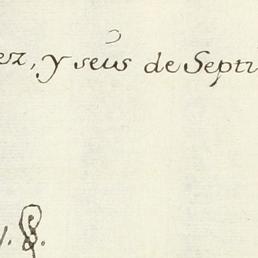 ez, y seis de Septi